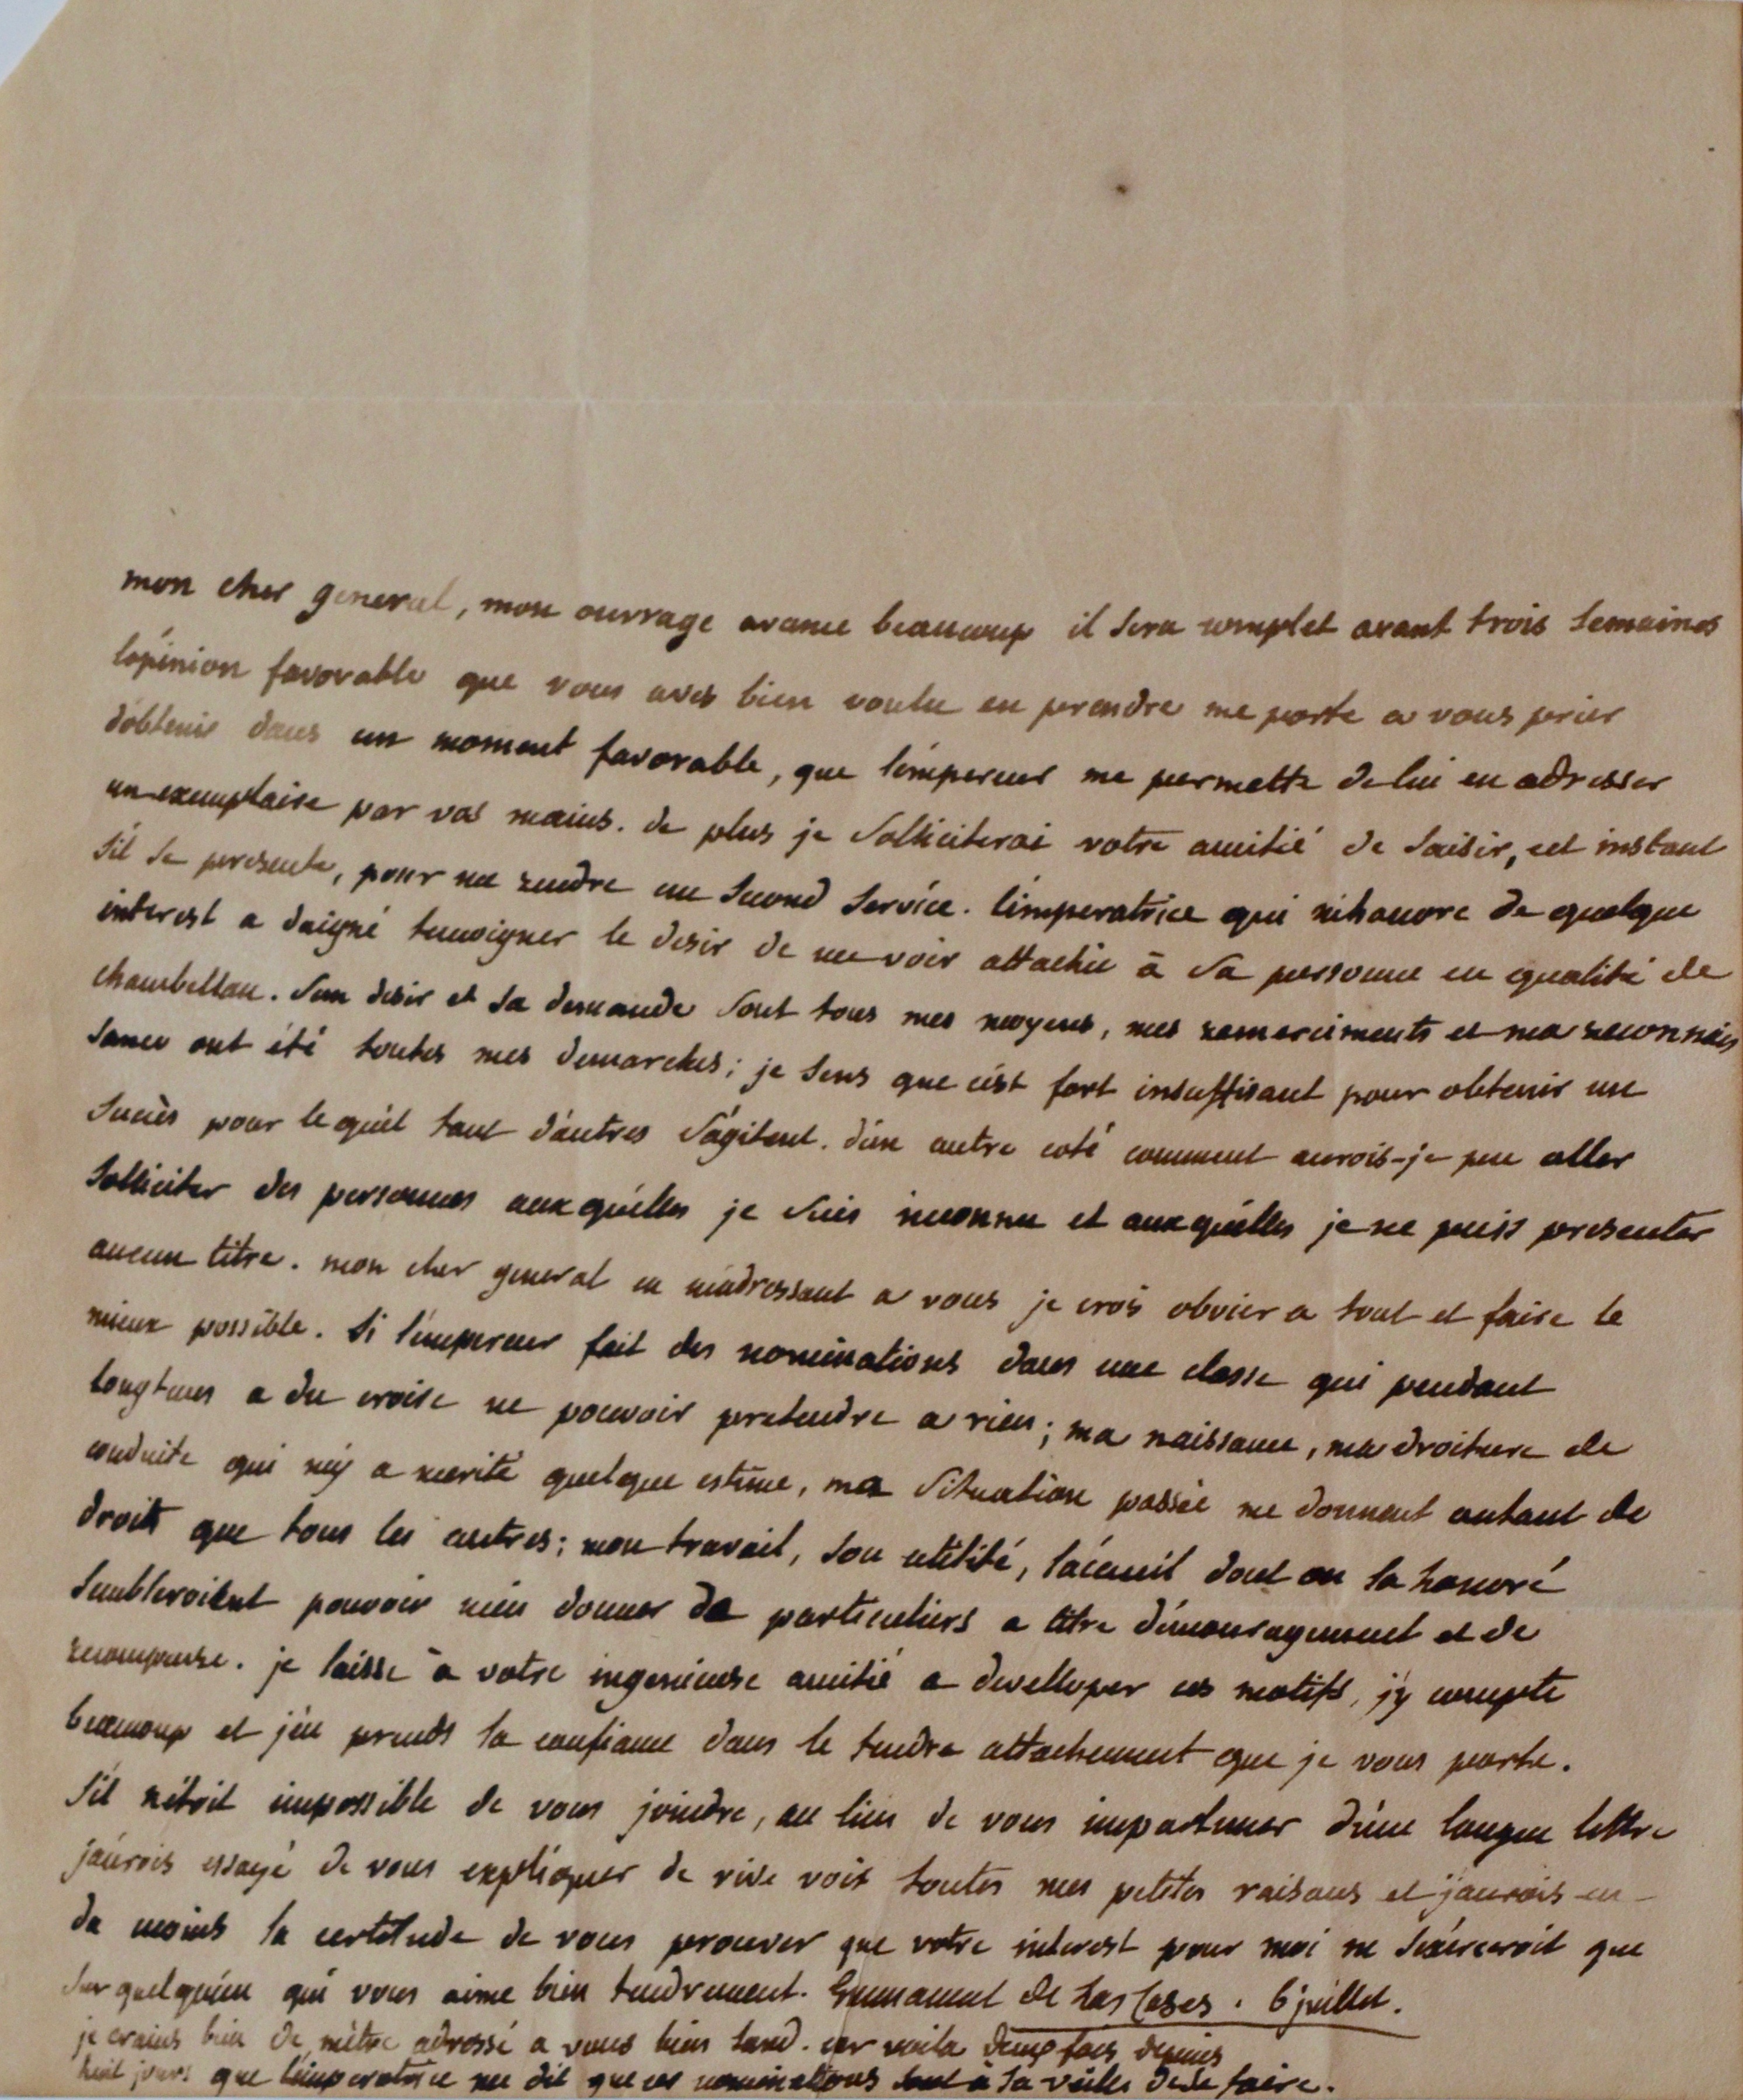 mon cher general, mon ouvrage avance beaucoup il sera complet avant trois semaines
l'opinion favorable que vous avés bien voulu en prendre me porte a vous prier
d'obtenir dans un moment favorable, que l'empereur me permette de lui en adresser
un exemplaire par vos mains. de plus je solliciterai votre amitié de saisir, cet instant
s'il se presente, pour me rendre un second service. l'imperatrice qui m'honore de quelque
interest a daigné temoigner le desir de me voir attaché à sa personne en qualité de
chambellan. son desir et sa demande sont tous mes moyens, mes remerciments et ma reconnais
sance ont été toutes mes demarches; je sens que c'est fort insuffisant pour obtenir un
succès pour le quel tant d'autres s'agitent. d'un autre coté comment aurois-je pu aller
solliciter des personnes aux quelles je suis inconnu et aux quelles je ne puis presenter
aucun titre. mon cher general en m'adressant a vous je crois obvier a tout et faire le
mieux possible. si l'empereur fait des nominations dans une classe qui pendant
longtems a du croire ne pouvoir pretendre a rien; ma naissance, ma droiture de
conduite qui m'y a merité quelque estime, ma situation passée me donnent autant de
droit que tous les autres; mon travail, son utilité, l'accueil dont on l'a honoré
sembleroient pouvoir m'en donner de particuliers a titre d'encouragement et de
recompense. je laisse à votre ingenieuse amitié a developper ces motifs, j'y compte
beaucoup et j'en prends la confiance dans le tendre attachement que je vous porte.
s'il n'étoit impossible de vous joindre, au lieu de vous importuner d'une longue lettre
j'aurois essayé de vous expliquer de vive voix toutes mes petites raisons et j'aurois eu
du moins la certitude de vous prouver que votre interest pour moi ne s'exerceroit que
sur quelqu'un qui vous aime bien tendrement. Emmanuel de Las Cases. 6 juillet.
je crains bien de m'être adressé a vous bien tard. car voila deux fois depuis
huit jours que l'imperatrice me dit que ces nominations sont à la veille de se faire.